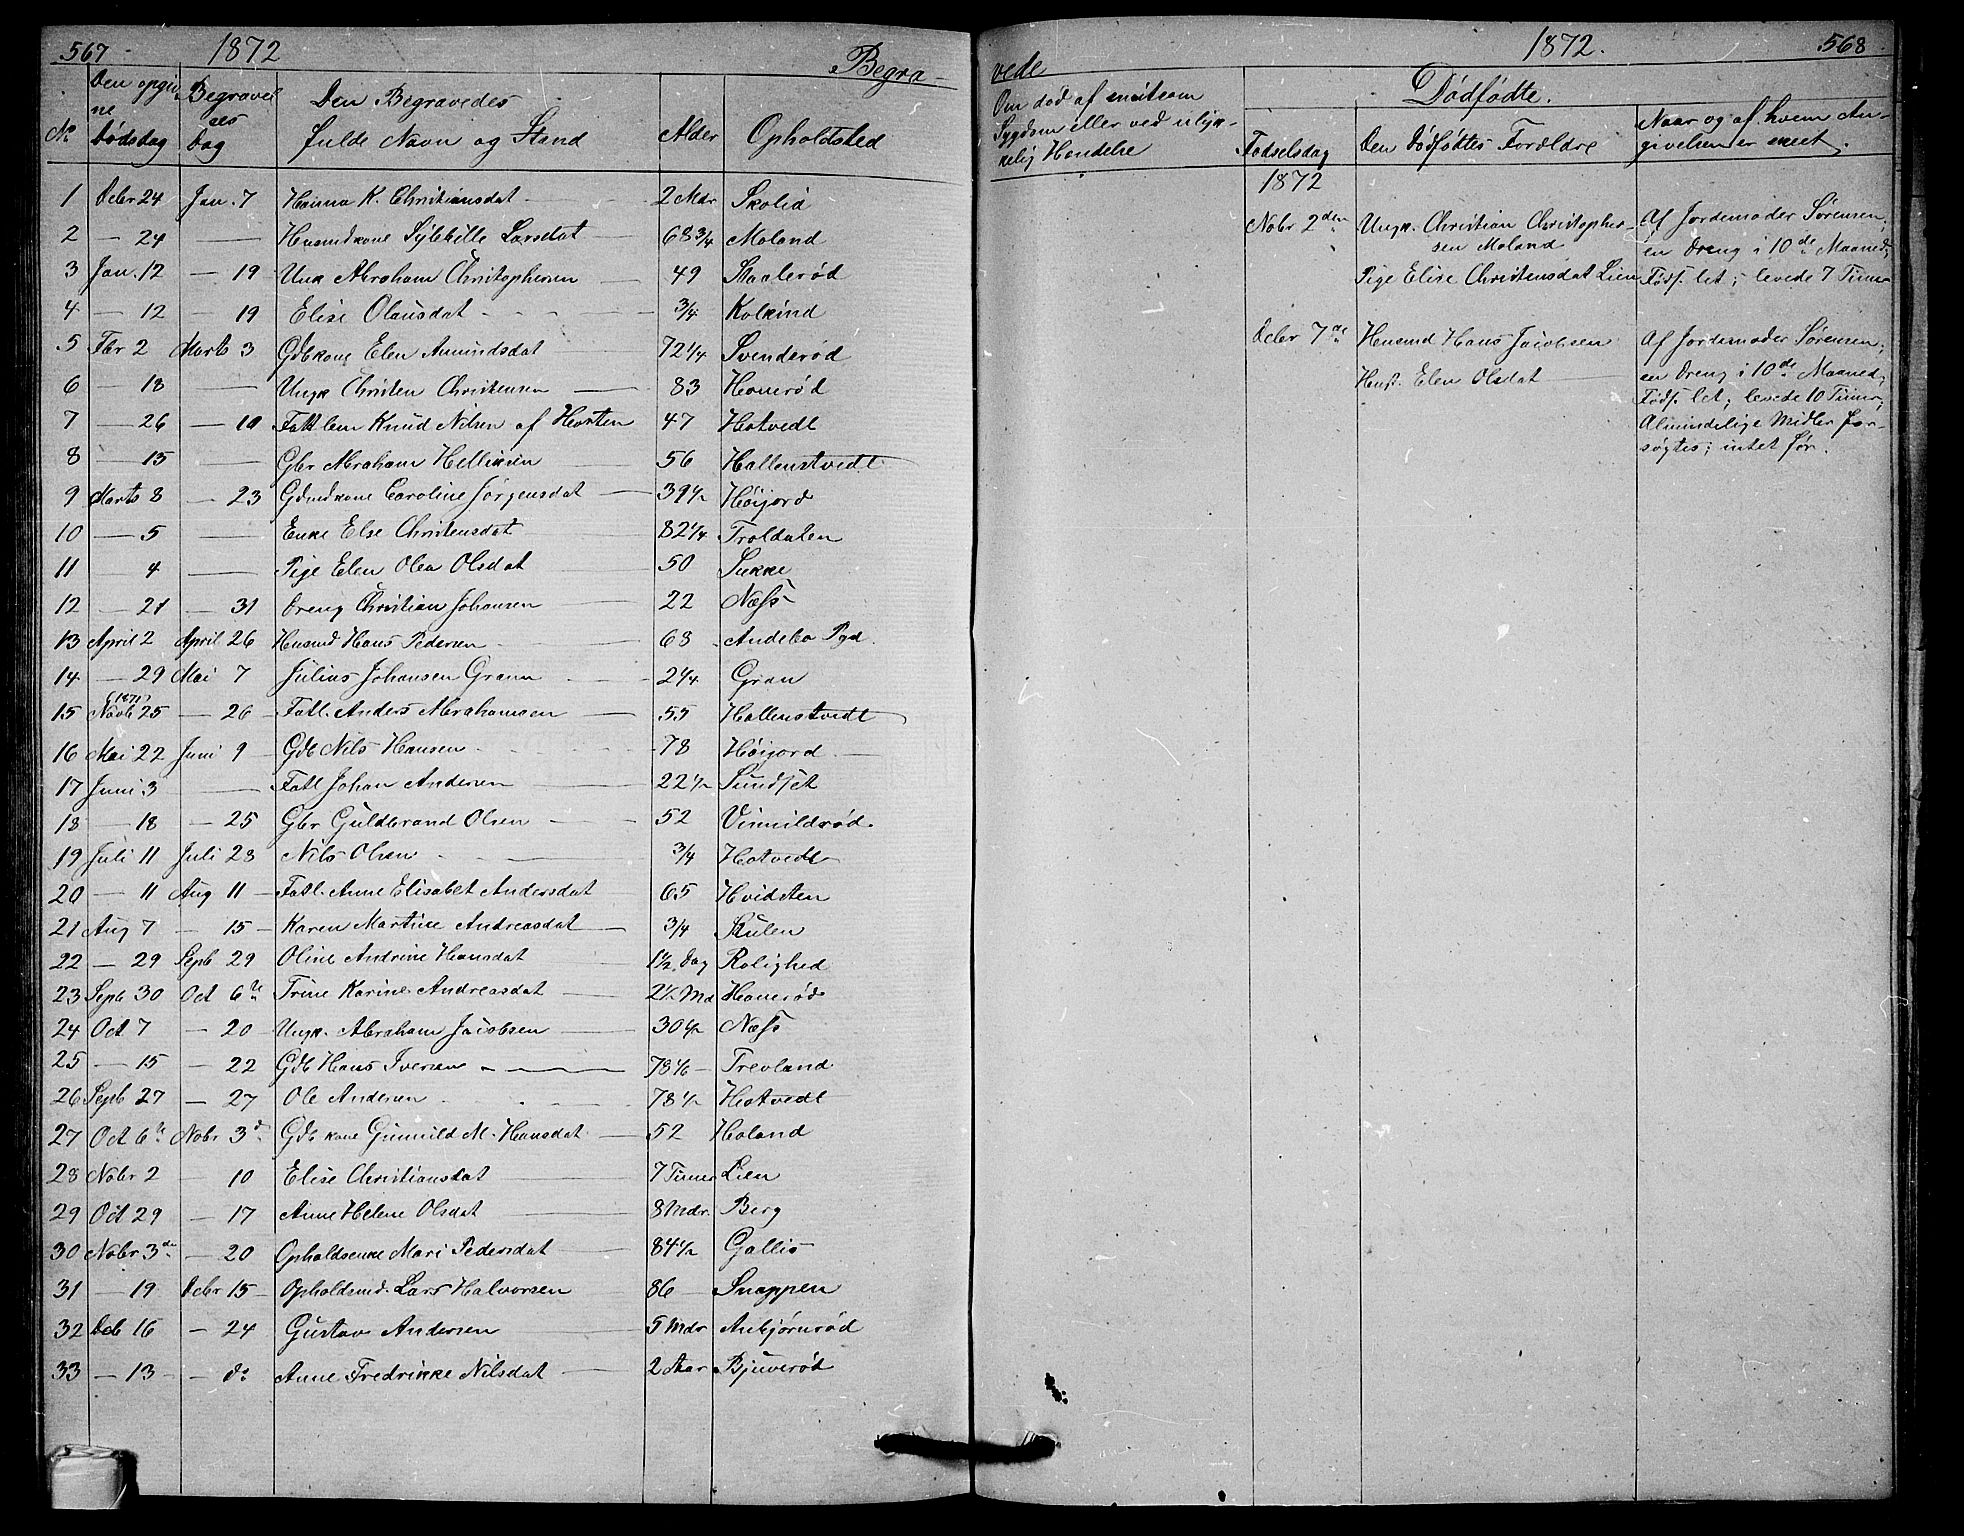 567 1872 Begra-
Den opgivne Dødsdag
Begravelses Dag
Den Begravedes fulde Navn og Stand
No Alder Opholdsted
1 Debr 24 Jan. 7 Hanna K. Christiansdat 2 Mdr Skolid
2 — 24 — Husmdkone Larsdat 68 3/4 Moland
3 Jan. 12 — 19 Unk Abraham Christophersen 49 Staalerød
4 — 12 — 19 Elise Olausdat 3/4 Kolkind
5 Fbr 2 Marts 3 Gdbkone Elen Amundsdat 72 1/4 Svenderød
6 — 18 — Ungk Christen Christensen 83 Honerød
7 — 26 — 10 Fattlem Knud Nilsen af Horten 47 Hotvedt
8 — 15 — Gbr Abraham Helliksen 56 Hallenstvedt
9 Marts 8 — 23 Gdmdkone Caroline Jørgensdat 39 1/2 Høijord
10 — 5 — Enke Else Christensdat 82 1/4 Troldalen
11 — 4 — Pige Elen Olea Olsdat 50 Sukke
12 — 21 — 31 Dreng Christian Johansen 22 Næss
13 April 2 April 26 Husmd Hans Pedersen 68 Andebo Pgd.
14 — 29 Mai 7 Julius Johansen Grann 2 1/4 Gran
15 (1871) Novb 25 — 26 Fatl. Anders Abrahamsen 55 Hallenstvedt
16 Mai 22 Juni 9 Gdb Nils Hansen 78 Høijord
17 Juni 3 — Fatl Johan Andersen 22 1/2 Sundset
18 — 18 — 25 Gbr Guldbrand Olsen 52 Vimildrød
19 Juli 11 Juli 28 Nils Olsen 3/4 Hotvedt
20 — 11 Aug 11 Fatl. Anne Elisabet Andersdat 65 Hvidsten
21 Aug 7 — 15 Karen Martine Andreasdat 3/4 Skulen
22 — 29 Sepb 29 Oline Andrine Hansdat 1 1/2 Dag Rolighed
23 Sepb 30 Oct 6te Trine Karine Andreasdat 2 1/2 Md Honerød
24 Oct 7 — 20 Ungk. Abraham Jacobsen 30 1/2 Næss
25 — 15 — 22 Gdb Hans Iversen 78 1/2 Trevland
26 Sepb 27 — 27 Ole Andersen 78 1/2 Hotvedt
27 Oct 6te Nobr 3d Gdb kone Gunnild M. Hansdat 52 Holand
28 Nobr 2 — 10 Elise Christiansdat 7 Timer Lien
29 Oct 29 — 17 Anne Helene Olsdat 8 Mdr. Berg
30 Nobr 3de — 20 Opholdsenke Mari Pedersdat 84 1/2 Gallis
31 — 19 Debr 15 Opholdsmd. Lars Halvorsen 86 Snappen
32 Deb 16 — 24 Gustav Andersen 5 Mdr Anbjørnrød
33 — 13 — do Anne Fredrikke Nilsdat 2 Aar Bjuverød
vede 1872. 568
Om død af smitsom
Sygdom eller ved ulyk-
kelig Hendelse
Dødfødte.
Fødselsdag
Den Dødfødtes Forældre
Naar og af hvem An-
givelsen er skeet.
1872
Nobr 2den Ungk. Christian Christopher-
sen Moland
Pige Elise Christensdat Lien
Af Jordemoder Sørensen;
en Dreng i 10de Maaned;
Føds. let; levede 7 Timer
Debr 7de Husmd Hans Jacobsen
Hust. Elen Olsdat
Af Jordemoder Sørensen;
en Dreng i 10de Maaned;
Føds. let; levede 10 Timer;
Almindelige Midler for-
søgtes; intet før.